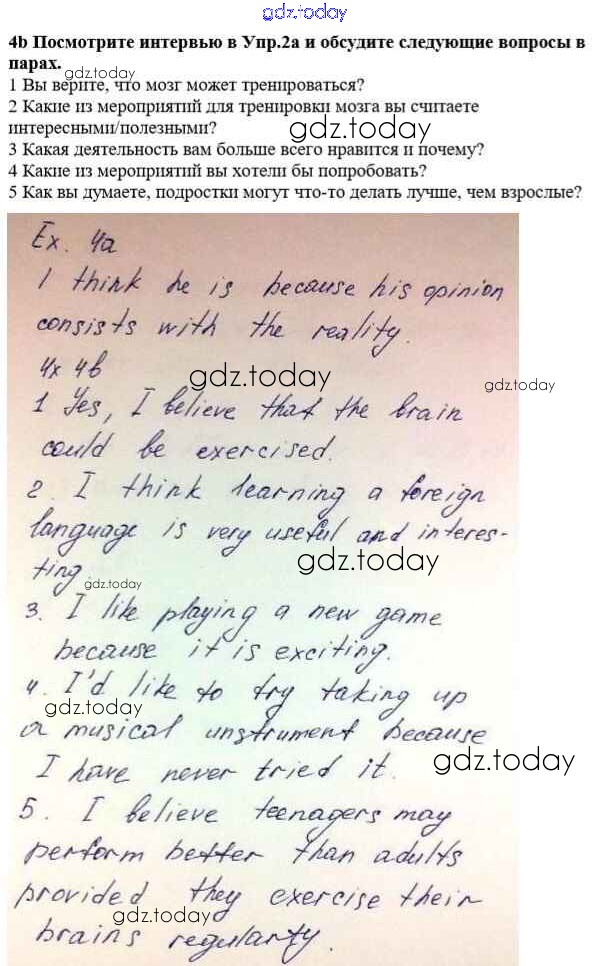 gdz.today
4b Посмотрите интервью в Упр.2a и обсудите следующие вопросы в
парах.
gdz.today
1 Вы верите, что мозг может тренироваться?
2 Какие из мероприятий для тренировки мозга вы считаете
интересными/полезными?
gdz.today
3 Какая деятельность вам больше всего нравится и почему?
4 Какие из мероприятий вы хотели бы попробовать?
5 Как вы думаете, подростки могут что-то делать лучше, чем взрослые?
Ex. 4a
I think he is because his opinion
consists with the reality.
4x 4b
gdz.today
gdz.today
1 Yes, I believe that the brain
could be exercised.
2. I think learning a foreign
language is very useful and interes-
ting
gdz.today
gdz.today
3. I like playing a new game
because it is exciting.
4. I'd like to try taking up
gdz.today
a musical unstrument because
I have never tried it.
gdz.today
5. I believe teenagers may
perform better than adults
provided they exercise their
gdz.today
brains regularty.